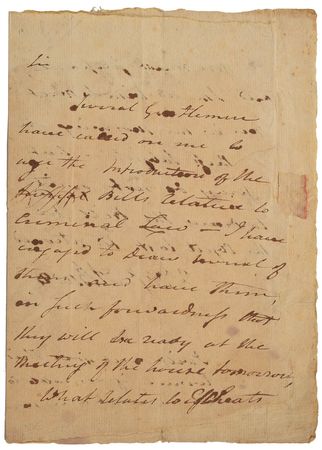 Sir
Several Gentlemen
have called on me to
urge the Introduction of the
Bills relative to
Criminal Law — I have
engaged to draw several of
them and have them,
in such forwardness that
they will be ready at the
Meeting of the house tomorrow,
What relates to Escheats